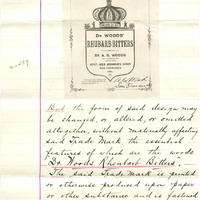 DR WOODS'
RHUBARB BITTERS
DR. A. S. WOODS
But the form of said design may
be changed, or altered, or omitted
altogether, without materially affecting
said Trade Mark the essential
features of which are the words
"Dr Woods Rheubarb Bitters".
The said Trade Mark is printed
or otherwise produced upon paper
or other substance and is fastened